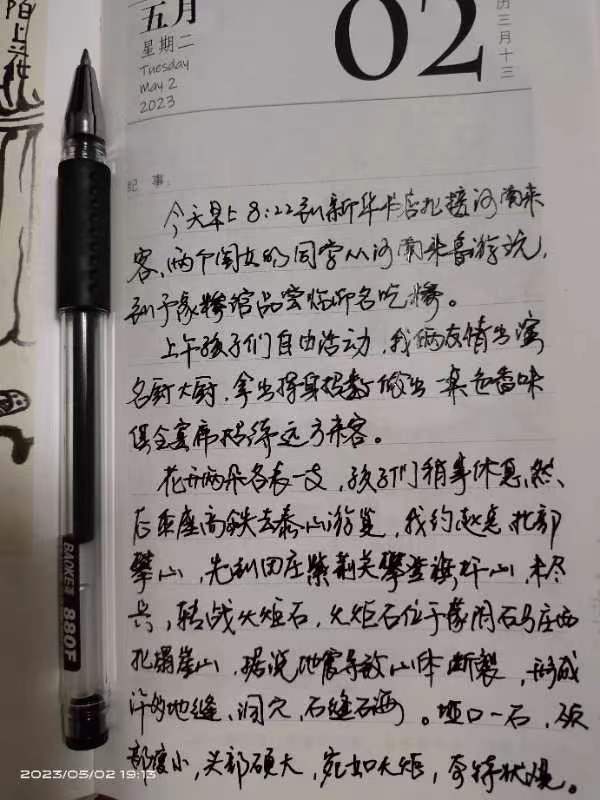 五月
星期二
Tuesday
May 2
2023
02
历三月十三
纪 事:
今天早上8:22到新华书店北接河南来
客,两个闺女的同学从河南来鲁游玩,
到于家糁馆品尝临沂名吃糁。
上午孩子们自由活动,我俩友情出演
名厨大厨,拿出择身招数做出一桌色香味
俱全宴席招待远方来客。
花开两朵各表一支,孩子们稍事休息,然
后乘座高铁去泰山游览,我约赵老北部
攀山,先到田庄紫荆关攀登旗杆山,未尽
兴,转战火炬石,火炬石位于蒙阴石马庄西
北塌崖山,据说地震导致山体断裂,形成
许多地缝、洞穴,石缝石海。垭口一石,颈
部瘦小,头部硕大,宛如火炬,奇特状观。
BAOKE 880F
2023/05/02 19:13